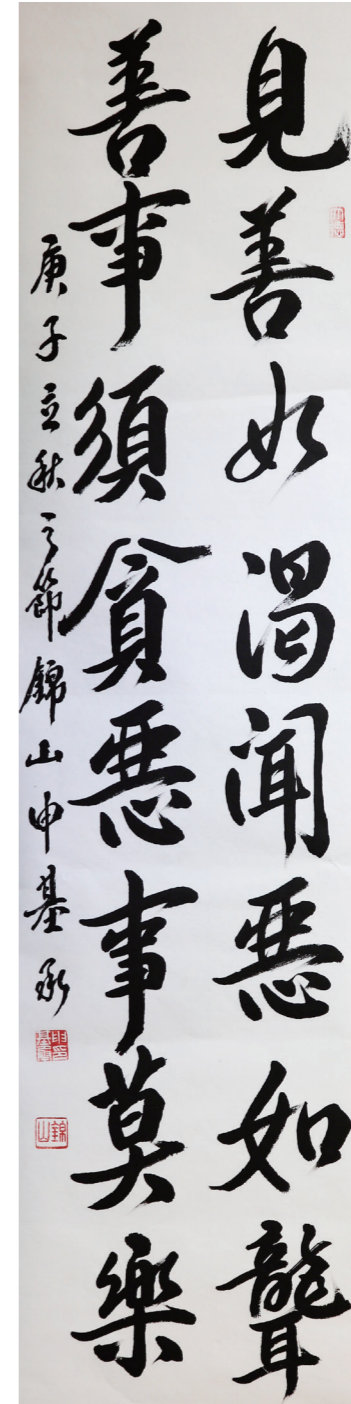 見善如渴聞惡如聾
善事須貪惡事莫樂
庚子立秋之節錦山申基承
錦山